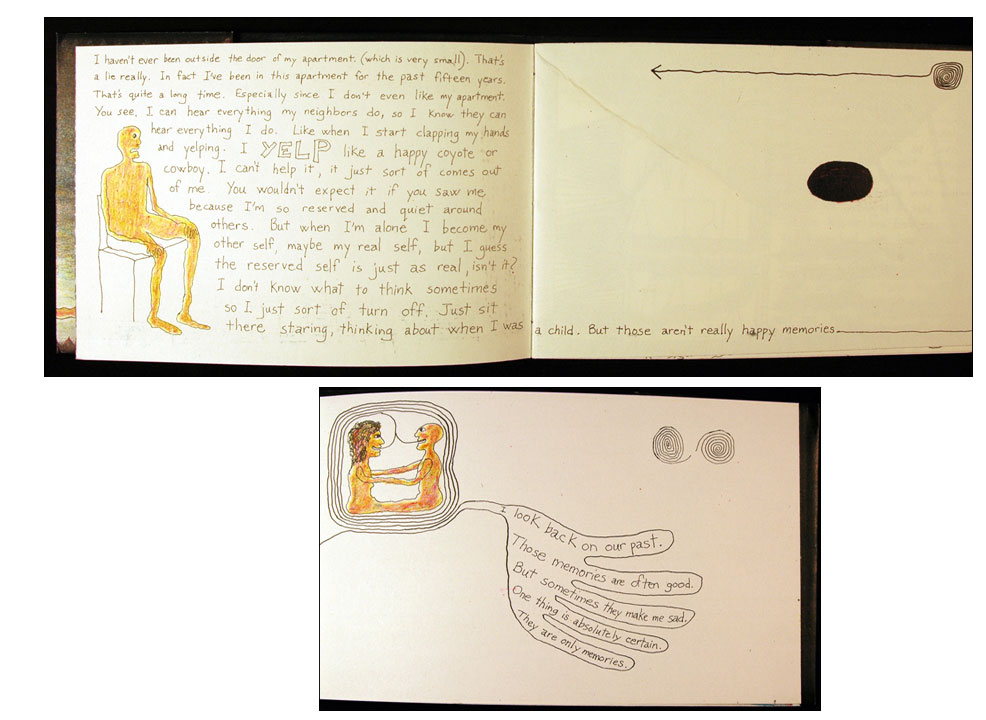 I haven't ever been outside the door of my apartment. (which is very small). That's
a lie really. In fact I've been in this apartment for the past fifteen years.
That's quite a long time. Especially since I don't even like my apartment.
You see, I can hear everything my neighbors do, so I know they can
hear everything I do. Like when I start clapping my hands
and yelping. I YELP like a happy coyote or
cowboy. I can't help it, it just sort of comes out
of me. You wouldn't expect it if you saw me
because I'm so reserved and quiet around
others. But when I'm alone I become my
other self, maybe my real self, but I guess
the reserved self is just as real, isn't it?
I don't know what to think sometimes
so I just sort of turn off. Just sit
there staring, thinking about when I was a child. But those aren't really happy memories.
I look back on our past.
Those memories are often good.
But sometimes they make me sad.
One thing is absolutely certain.
They are only memories.